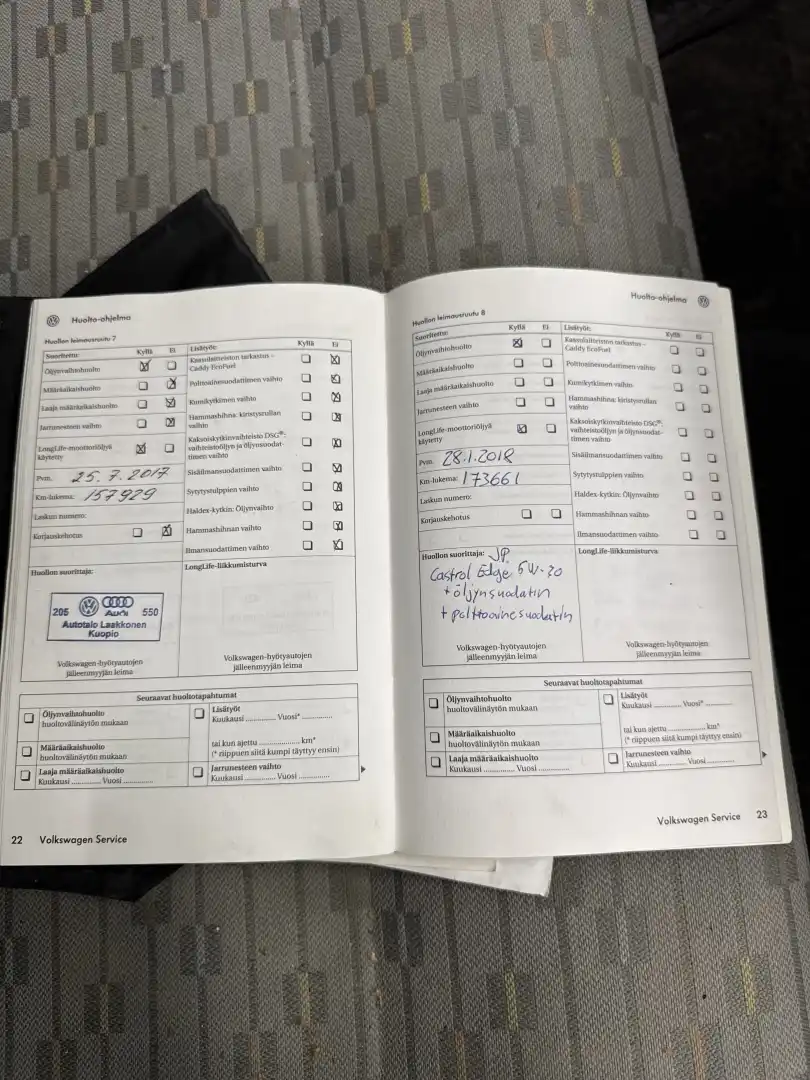 Huolto-ohjelma
Huollon leimausruutu 7
Suoritettu: Kyllä Ei
Öljynvaihtohuolto
Määräaikaishuolto
Laaja määräaikaishuolto
Jarrunesteen vaihto
LongLife-moottoriöljyä
käytetty
Pvm. 25.7.2017
Km-lukema: 157929
Laskun numero:
Korjauskehotus
Lisätyöt: Kyllä Ei
Kaasulaitteiston tarkastus –
Caddy EcoFuel
Polttoainesuodattimen vaihto
Kumikytkimen vaihto
Hammashihna: kiristysrullan
vaihto
Kaksoiskytkinvaihteisto DSG®:
vaihteistoöljyn ja öljynsuodat-
timen vaihto
Sisäilmansuodattimen vaihto
Sytytystulppien vaihto
Haldex-kytkin: Öljynvaihto
Hammashihnan vaihto
Ilmansuodattimen vaihto
Huollon suorittaja:
205 Audi 550
Autotalo Laakkonen
Kuopio
Volkswagen-hyötyautojen
jälleenmyyjän leima
LongLife-liikkumisturva
Volkswagen-hyötyautojen
jälleenmyyjän leima
Seuraavat huoltotapahtumat
Öljynvaihtohuolto
huoltovälinäytön mukaan
Määräaikaishuolto
huoltovälinäytön mukaan
Laaja määräaikaishuolto
Kuukausi ............ Vuosi ............
Lisätyöt
Kuukausi ............ Vuosi* ............
tai kun ajettu ............ km*
(* riippuen siitä kumpi täyttyy ensin)
Jarrunesteen vaihto
Kuukausi ............ Vuosi ............
22 Volkswagen Service
Huolto-ohjelma
Huollon leimausruutu 8
Suoritettu: Kyllä Ei
Öljynvaihtohuolto
Määräaikaishuolto
Laaja määräaikaishuolto
Jarrunesteen vaihto
LongLife-moottoriöljyä
käytetty
Pvm. 28.1.2018
Km-lukema: 173661
Laskun numero:
Korjauskehotus
Lisätyöt: Kyllä Ei
Kaasulaitteiston tarkastus –
Caddy EcoFuel
Polttoainesuodattimen vaihto
Kumikytkimen vaihto
Hammashihna: kiristysrullan
vaihto
Kaksoiskytkinvaihteisto DSG®:
vaihteistoöljyn ja öljynsuodat-
timen vaihto
Sisäilmansuodattimen vaihto
Sytytystulppien vaihto
Haldex-kytkin: Öljynvaihto
Hammashihnan vaihto
Ilmansuodattimen vaihto
Huollon suorittaja: JP.
Castrol Edge 5W-30
+ öljynsuodatin
+ polttoainesuodatin
Volkswagen-hyötyautojen
jälleenmyyjän leima
LongLife-liikkumisturva
Volkswagen-hyötyautojen
jälleenmyyjän leima
Seuraavat huoltotapahtumat
Öljynvaihtohuolto
huoltovälinäytön mukaan
Määräaikaishuolto
huoltovälinäytön mukaan
Laaja määräaikaishuolto
Kuukausi ............ Vuosi ............
Lisätyöt
Kuukausi ............ Vuosi* ............
tai kun ajettu ............ km*
(* riippuen siitä kumpi täyttyy ensin)
Jarrunesteen vaihto
Kuukausi ............ Vuosi ............
Volkswagen Service 23